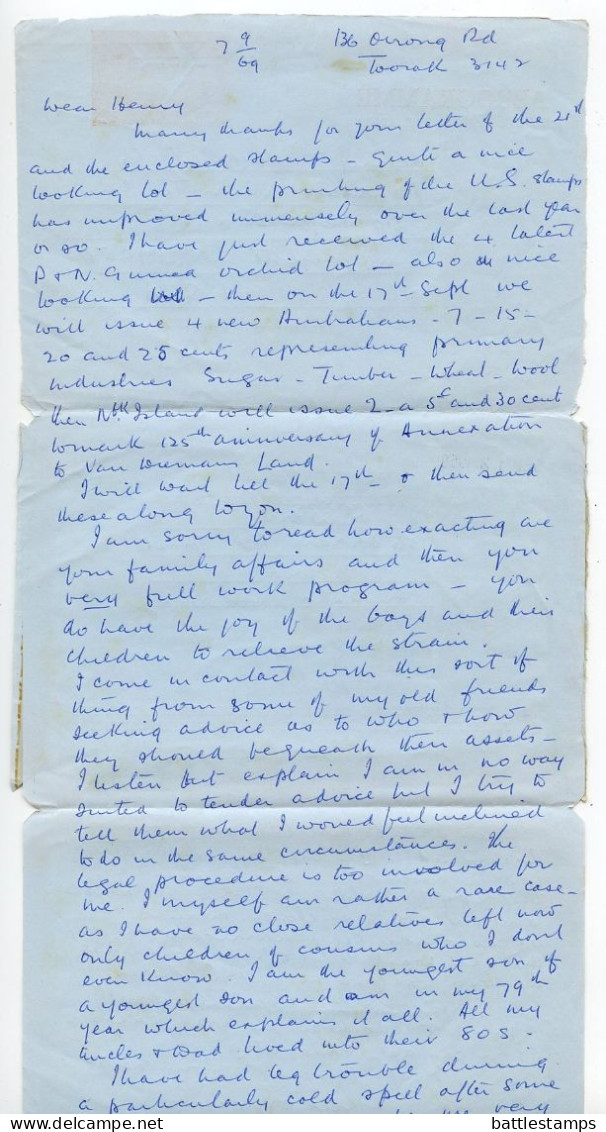 7 9/69 136 Orrong Rd
Toorak 3142
Dear Henry
Many thanks for your letter of the 21st
and the enclosed stamps - quite a nice
looking lot - the printing of the U.S. stamps
has improved immensely over the last year
or so. I have just received the 4 latest
P & N. Guinea orchid lot - also a nice
looking - then on the 17th Sept we
will issue 4 new Australians - 7 - 15 -
20 and 25 cents representing primary
industries Sugar - Timber - Wheat - Wool
then Nth Island will issue 2 - a 5c and 30 cent
to mark 125th anniversary of Annexation
to Van Diemans Land.
I will wait till the 17th & then send
these along to you.
I am sorry to read how exacting are
your family affairs and then you
very full work program - you
do have the joy of the boys and their
children to relieve the strain.
I come in contact with this sort of
thing from some of my old friends
seeking advice as to who & how
they should bequeath their assets -
I listen but explain I am in no way
suited to tender advice but I try to
tell them what I would feel inclined
to do in the same circumstances. The
legal procedure is too involved for
me. I myself am rather a rare case -
as I have no close relatives left now
only children of cousins who I dont
even know. I am the youngest son of
a youngest son and am in my 79th
year which explains it all. All my
uncles & Dad lived into their 80s.
I have had leg trouble during
a particularly cold spell after some
very
battlestamps